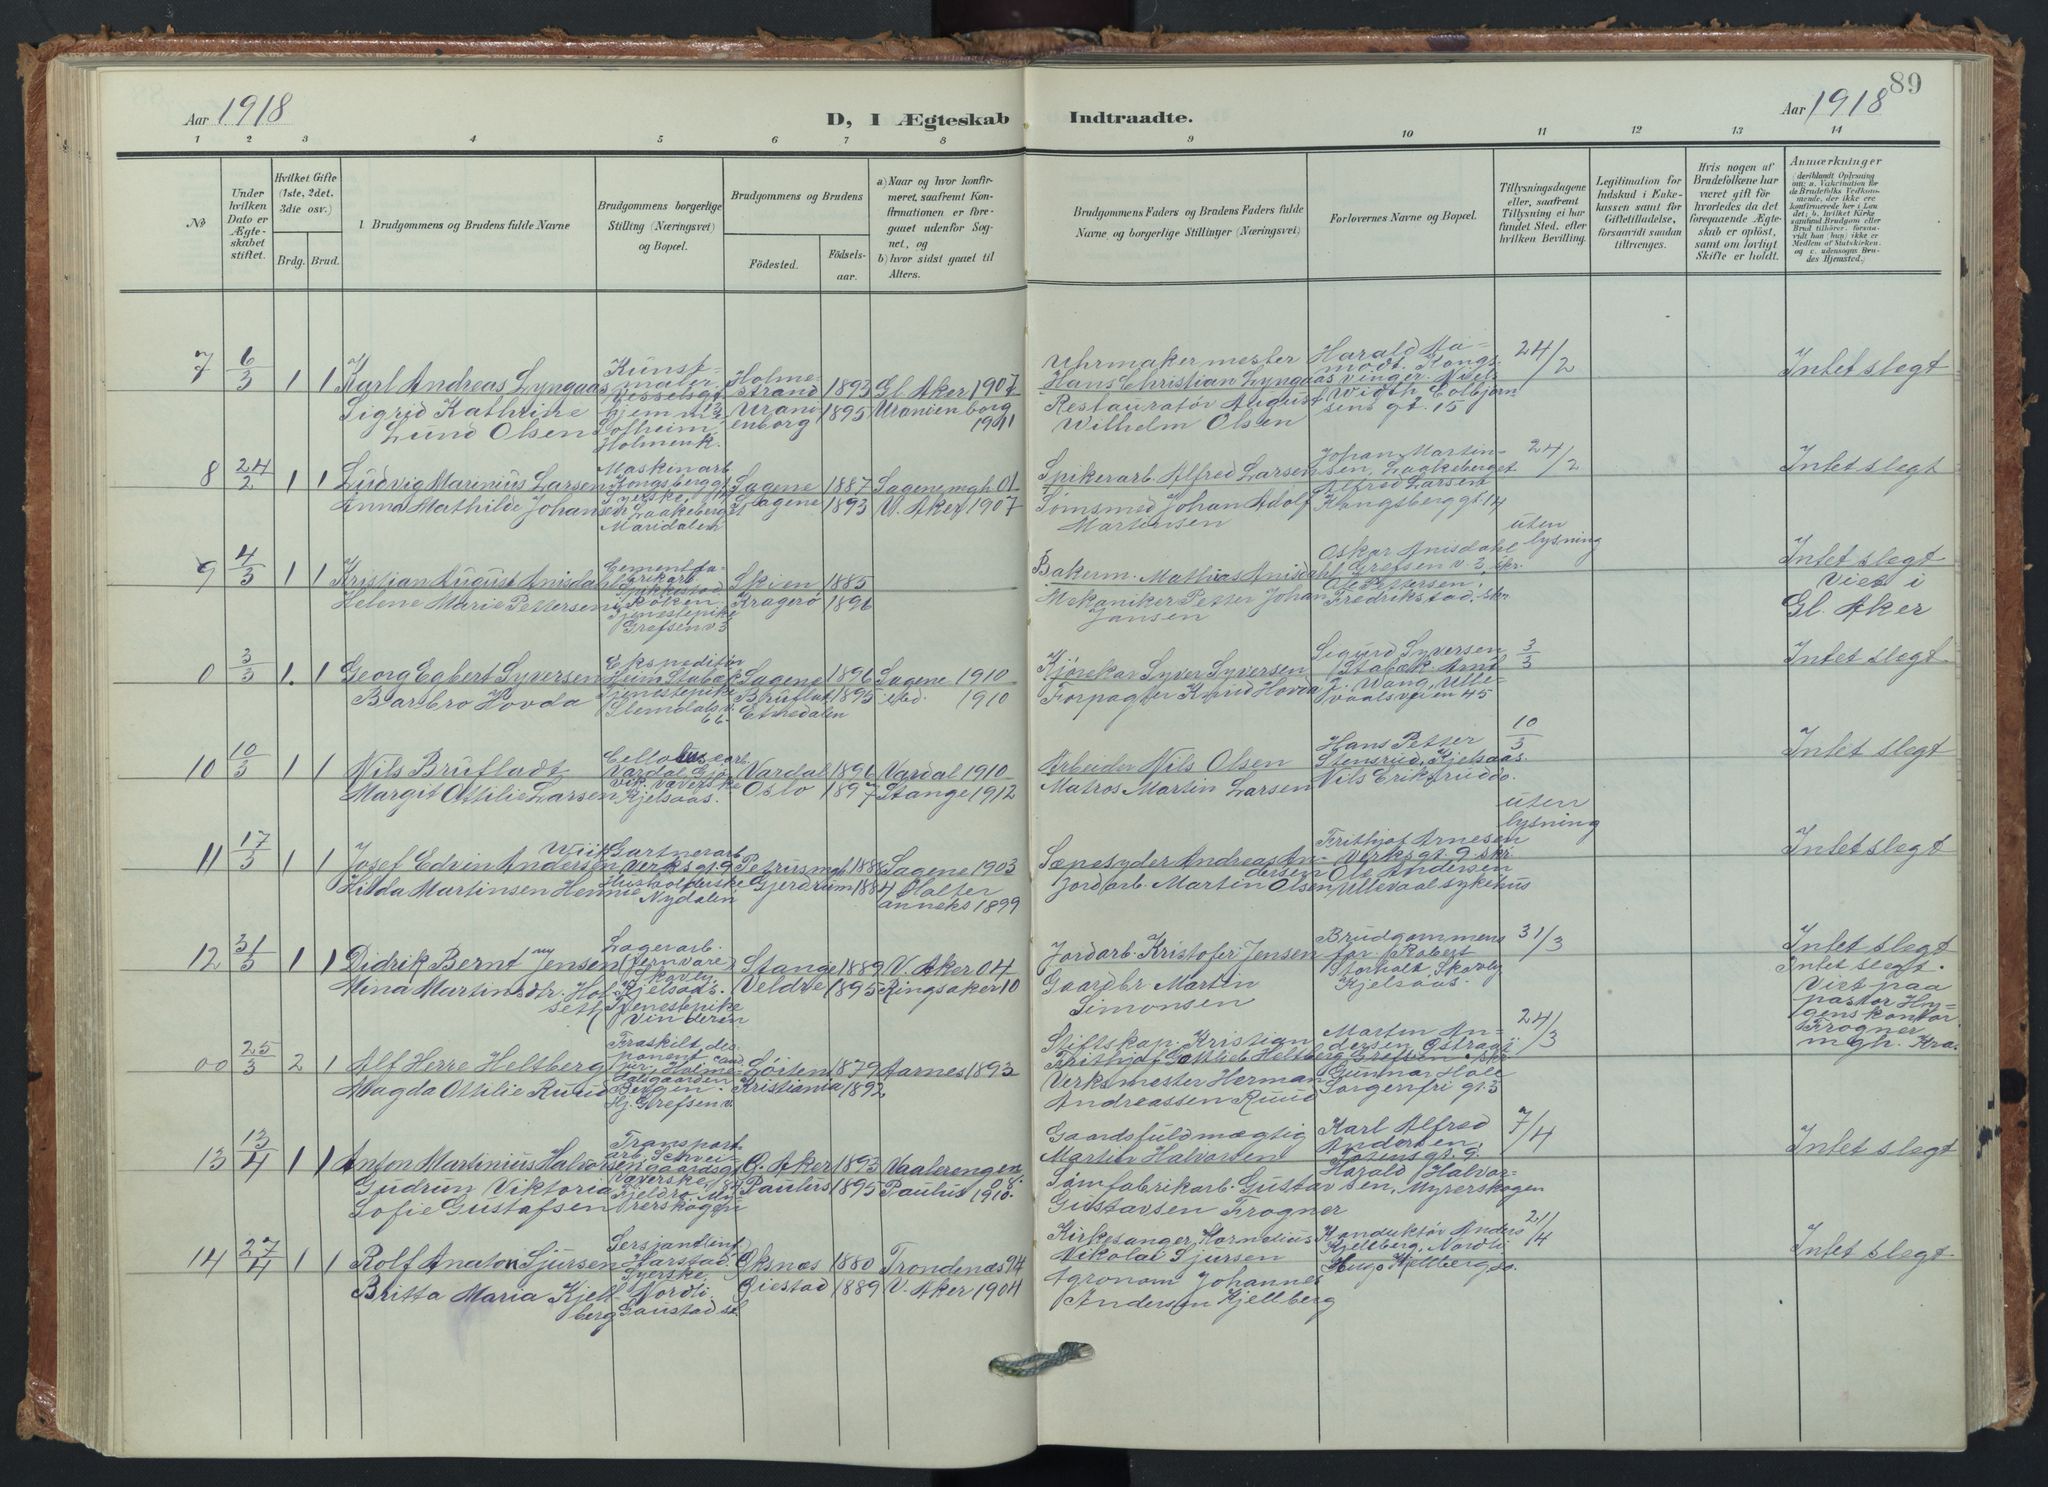 89
Aar 1918
D, I Ægteskab Indtraadte.
Aar 1918
1 2 3 4 5 6 7 8 9 10 11 12 13 14
No
Under hvilken Dato er Ægteskabet stiftet.
Hvilket Gifte (1ste, 2det. 3die osv.)
Brdg. Brud.
1. Brudgommens og Brudens fulde Navne
Brudgommens borgerlige Stilling (Næringsvei) og Bopæl.
Brudgommens og Brudens
Fødested.
Fødselsaar.
a) Naar og hvor konfirmeret, saafremt Konfirmationen er foregaaet udenfor Sognet, og
b) hvor sidst gaaet til Alters.
Brudgommens Faders og Brudens Faders fulde Navne, og borgerlige Stillinger (Næringsvei)
Forlovernes Navne og Bopæl.
Tillysningsdagene eller, saafremt Tillysning ei har fundet Sted, efter hvilken Bevilling.
Legitimation for Indskud i Enkekassen samt for Giftetilladelse, forsaavidt saadan tiltrænges.
Hvis nogen af Brudefolkene har været gift før hvorledes da det foregaaende Ægteskab er opløst, samt om lovligt Skifte er holdt.
Anmærkninger
7 6/3 1 1 Karl Andreas Lyngaas Kunstmaler Vesselsgt Holmestrand 1893 Gl. Aker 1907
Sigrid Kathrine Lund Olsen hjemm. Solheim, Holmenk. Uranienborg 1895 Uranienborg 1911
Uhrmakermester Hans Christian Lyngaas
Restauratør August Wilhelm Olsen
24/2 Intet slegt
8 24/2 1 1 Ludvig Marinius Larsen Maskinarb. Kongsberggt Sagene 1887 Sagene mgh 01
Anna Mathilde Johansen Syerske, Laakeberget Maridalen Sagene 1893 V. Aker 1907
Spikerarb. Alfred Larsen
Sømsmed Johan Adolf Martinsen
Johan Martinsen, Laakeberget
Alfred Larsen Kongsberggt. 14
24/2 Intet slegt
9 4/3 1 1 Kristian August Anisdahl Skien 1885
Helene Marie Pettersen Røken Tjenestepike Grefsen v 3 Kragerø 1896
Bakerm. Mathias Anisdahl
Mekaniker Petter Johan Jansen
Oskar Anisdahl Grefsen v. 3, skr.
Ole Pettersen, Fredrikstad, skr
uten lysning
Intet slegt
Viet i Gl. Aker
0 3/3 1. 1 Georg Egbert Syversen Ekspeditør Heim Stabæk Sagene 1896 Sagene 1910
Barbro Hovda Tjenestepike Slemdals v. 66 Bruflat Etnedalen 1895 sted. 1910
Kjørekar Syver Syversen
Forpagter Knud Hovda
Sigurd Syversen Stabæk. Arnt J. Wang, Ullevaalsveien 45
3/3 Intet slegt
10 10/3 1 1 Nils Brufladt Cellulosearb. Vardal Gjøvik. Vardal 1896 Vardal 1910
Margit Ottilie Larsen Væverske Kjelsaas. Oslo 1897 Stange 1912
Arbeider Nils Olsen
Matros Martin Larsen
Hans Petter Stensrud, Kjelsaas.
Nils Eriksrud do.
10/3 Intet slegt
11 17/3 1 1 Josef Edvin Andersen Wiik Gartnerarb. Verksgt. 9 Petrus mgh. 1888 Sagene 1903
Hilda Martinsen Hennie Husholderske Nydalen Gjerdrum 1884 Holter anneks 1899
Sænesyder Andreas Andersen
Jordarb. Martin Olsen
Frithjof Arnesen Verksgt. 9 skr.
Ole Andersen Ullevaal sykehus
uten lysning
Intet slegt
12 31/3 1 1 Didrik Bernt Jensen Lagerarb. (Jernvare) Skovly, Kjelsaas. Stange 1889 V. Aker 04
Mina Martinsdtr. Holseth Tjenestepike Vinderen Veldre 1895 Ringsaker 10
Jordarb. Kristofer Jensen
Gaardbr. Martin Simonsen
Brudgommens far Robert Storholt, Skovly Kjelsaas.
31/3 Intet slegt
00 25/3 2 1 Alf Herre Heltberg Fraskilt, disponent Bergen. Løiten 1879 Aarnes 1893
Magda Ottilie Ruud Hj. Grefsen v. Kristiania 1892
Stiftskap. Kristian Frithjof Gottlieb Heltberg
Verksmester Herman Andreassen Ruud
Martin Andersen Østraat Grefsen. skr
Gunnar Hole Sorgenfri gt. 5
24/3 Intet slegt. Viet paa pastor Hygens kontor Frogner mgh. Kra.
13 13/4 1 1 Anton Martinius Halvorsen Transportarb. Schweigaardsgt. Ø. Aker 1893 Vaalerengen 08.
Gudrun Viktoria Sofie Gustafsen Væverske, Fjeldro, Myrerskogen Paulus 1895 Paulus 1910.
Gaardsfuldmægtig Martin Halvorsen
Sømfabrikarb. Gustav Gustavsen Frogner
Karl Alfred Andersen, Totensgt. 9.
Harald Halvorsen, Myrerskogen
7/4 Intet slegt
14 27/4 1 1 Rolf Anaton Sjursen Sersjantlent Harstad. Øksnæs 1880 Trondenæs 94
Britta Maria Kjellberg Syerske, Nordli Gaustad st. Qiestad 1889 V. Aker 1904
Kirkesanger Kornelius Nikolai Sjursen
Agronom Johannes Andersen Kjellberg
Konduktør Anders Kjellberg, Nordli
Hugo Kjellberg do.
21/4 Intet slegt